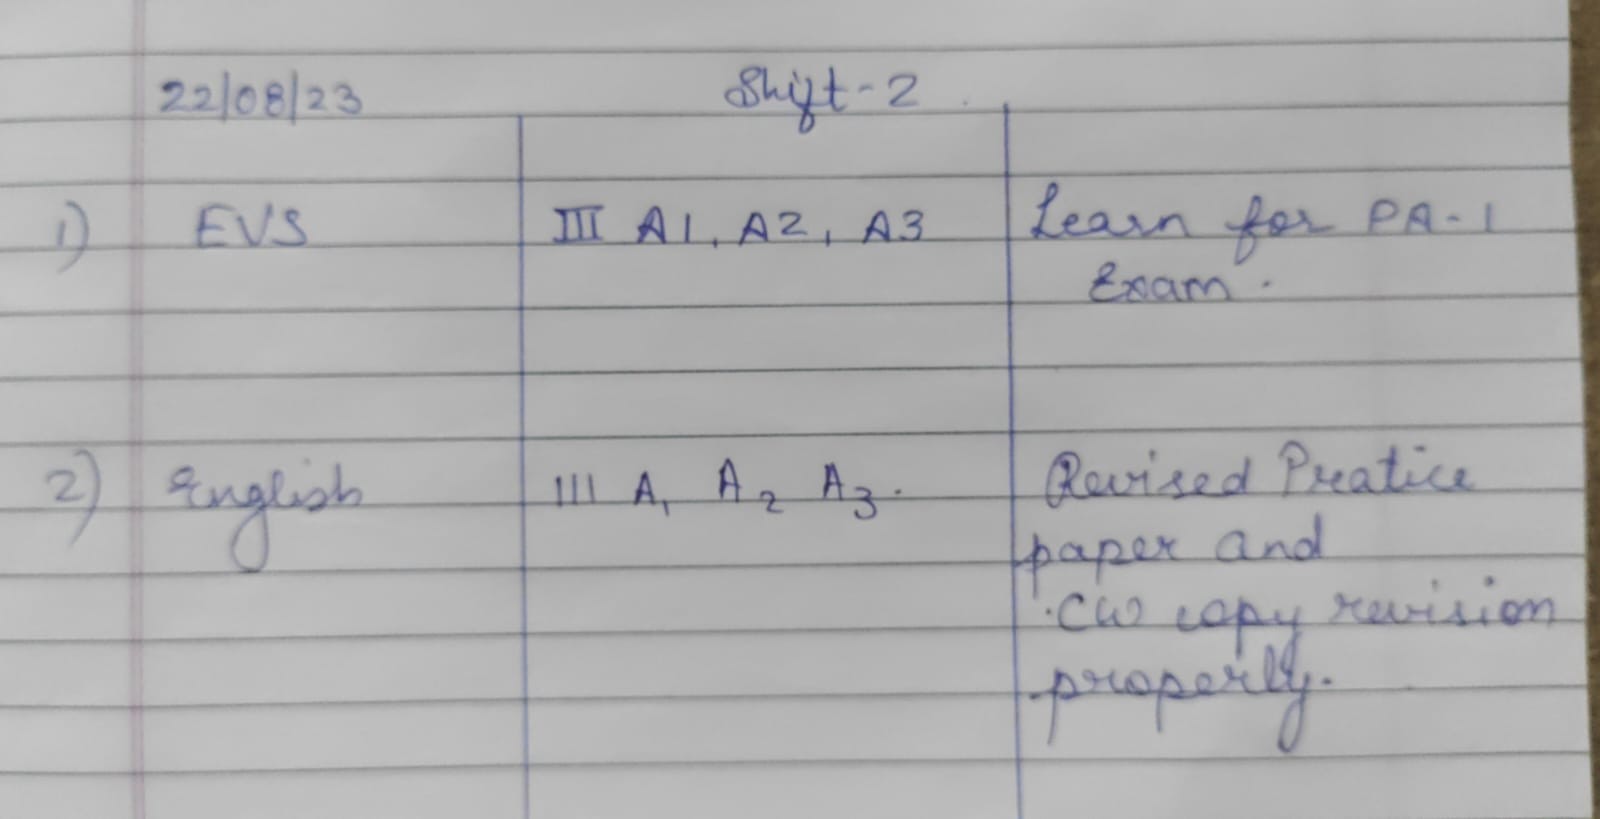 22/08/23 Shift-2
1) EVS III A1, A2, A3 Learn for PA-1
Exam.
2) English III A1 A2 A3. Revised Pratice
paper and
.CW copy revision
properly.